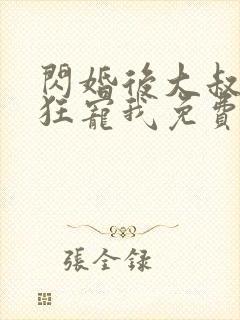 閃婚後大叔
狂寵我免費
張全録